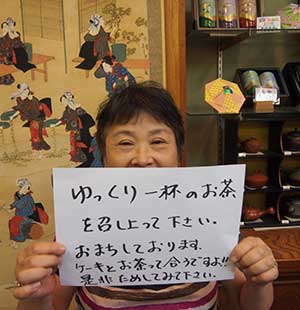 ゆっくり一杯のお茶
を召し上って下さい。
おまちしております。
ケーキとお茶って合うですよ!!
是非ためしてみて下さい。